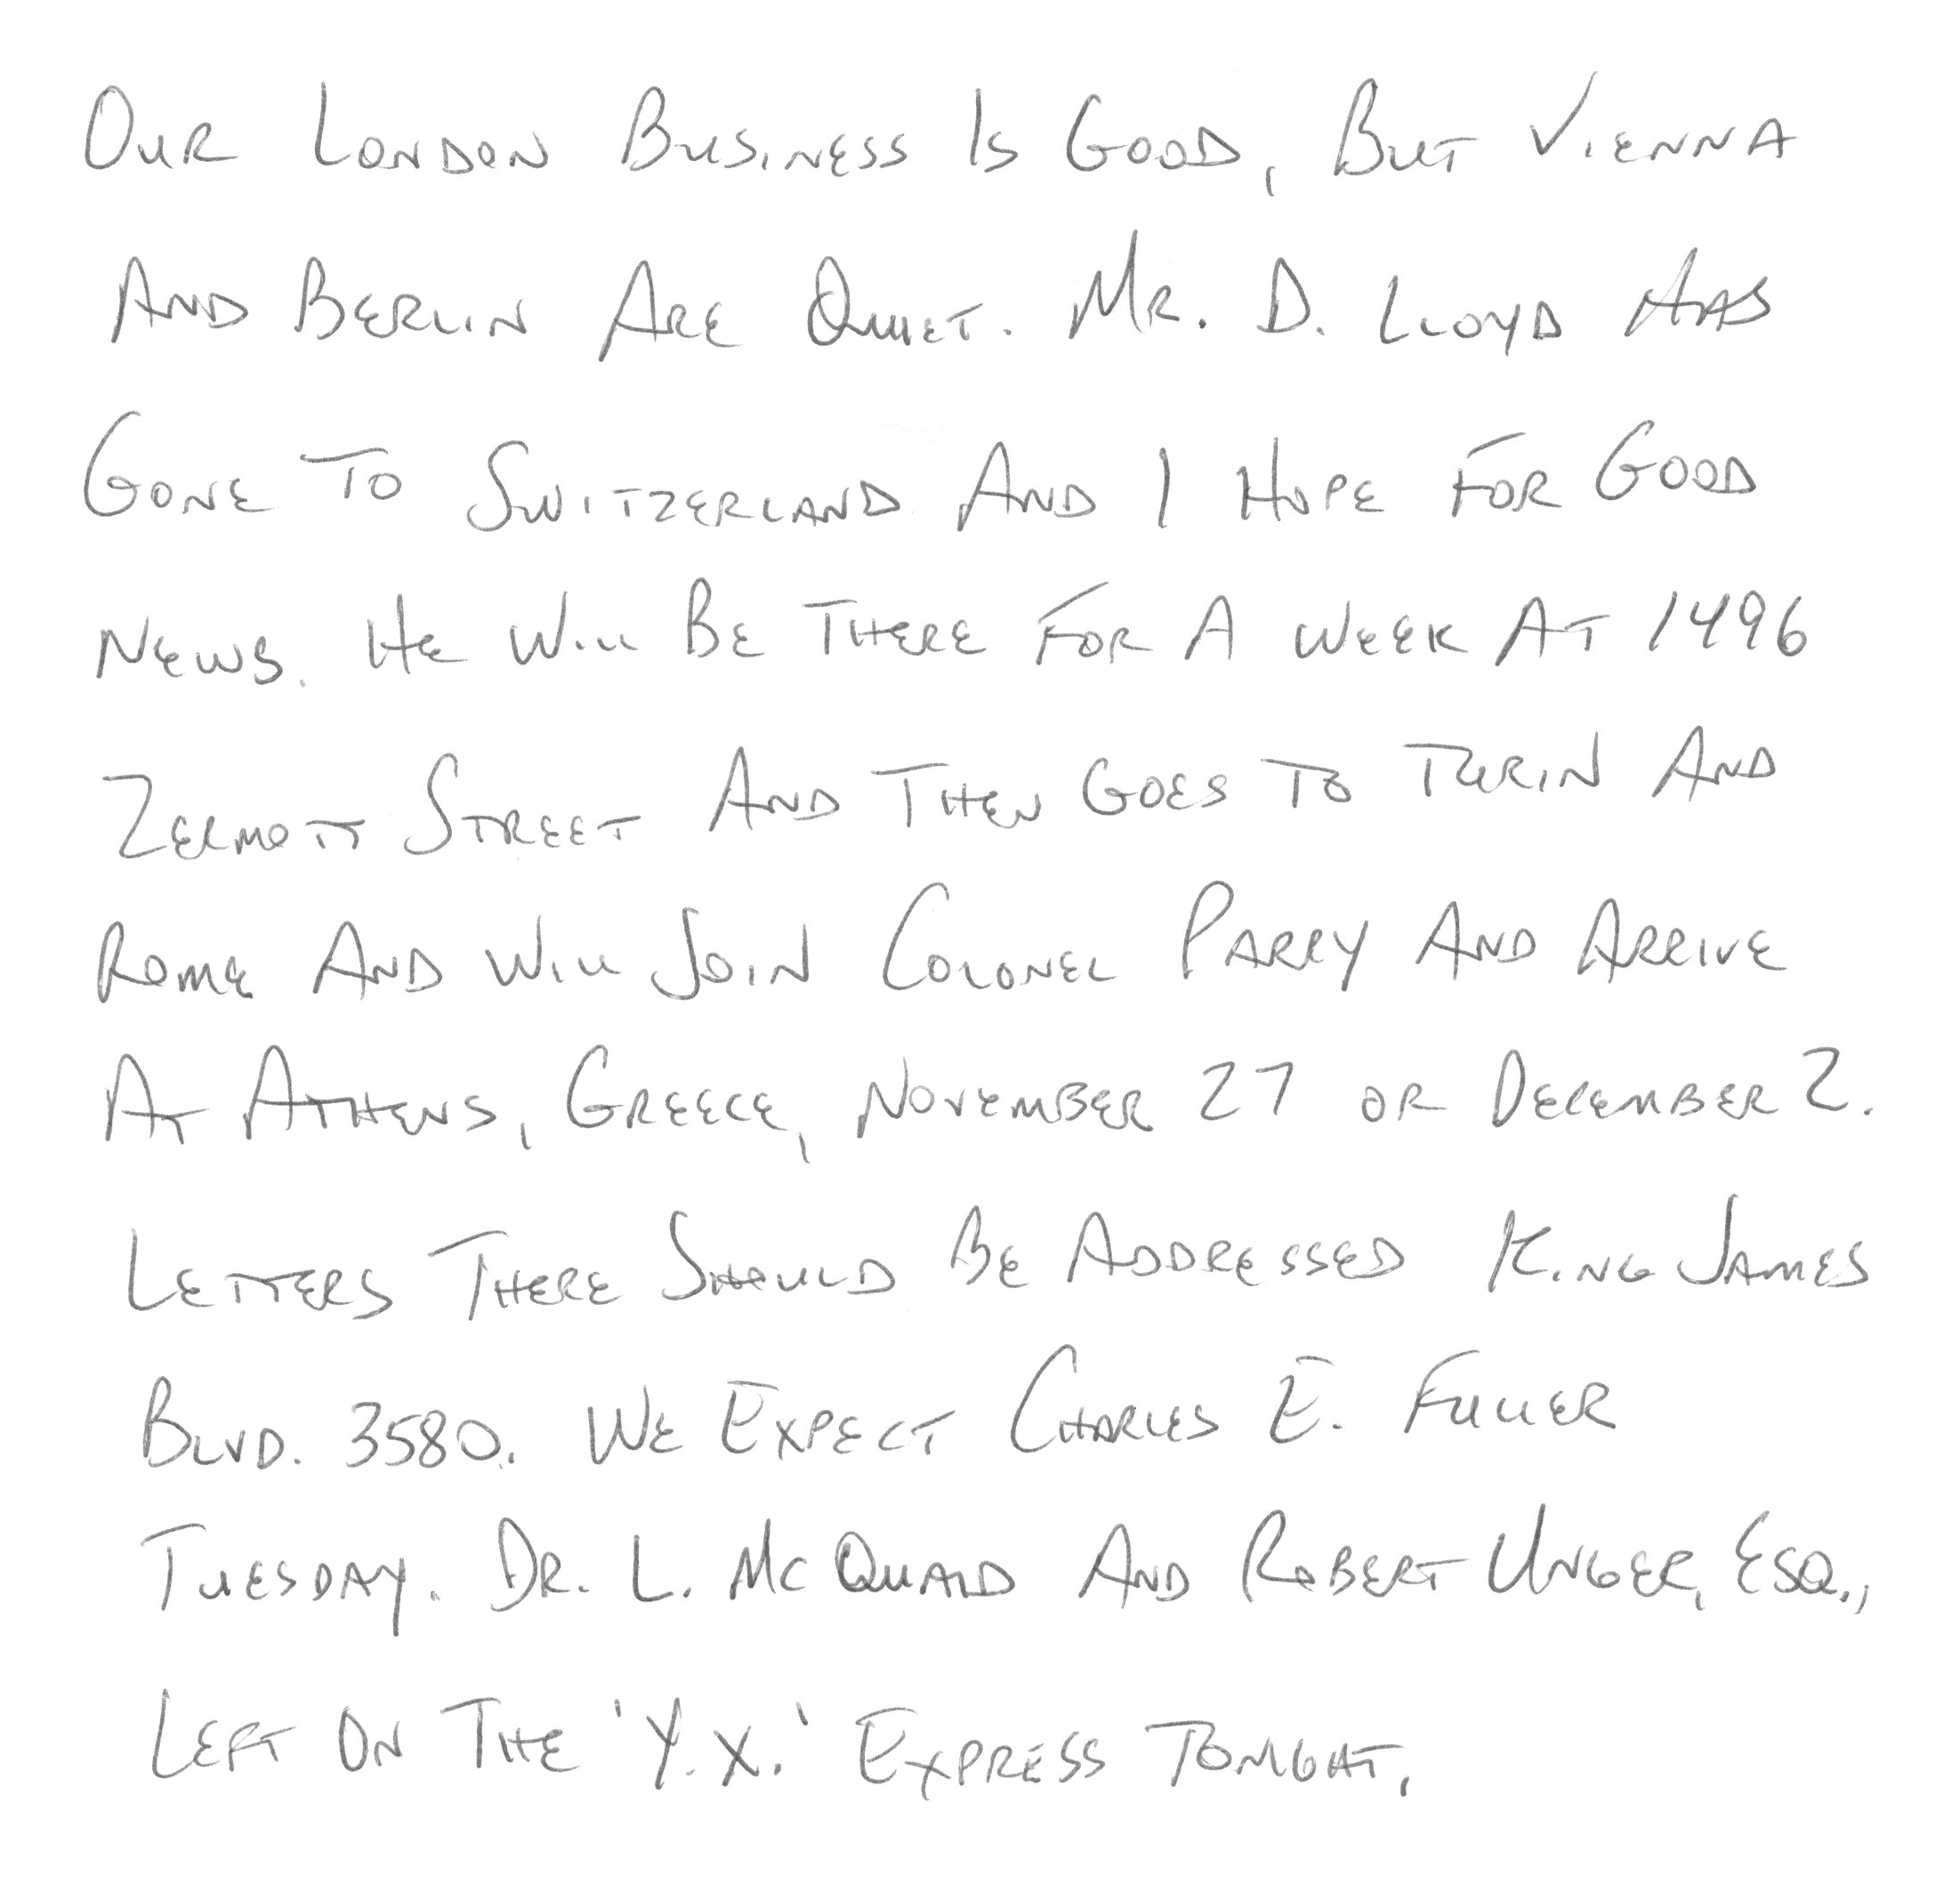 Our London Business Is Good, But Vienna
And Berlin Are Quiet. Mr. D. Lloyd Has
Gone To Switzerland And I Hope For Good
News. He Will Be There For A Week At 1496
Zermott Street And Then Goes To Turin And
Rome And Will Join Colonel Parry And Arrive
At Athens, Greece, November 27 or December 2.
Letters There Should Be Addressed King James
Blvd. 3580. We Expect Charles E. Fuller
Tuesday. Dr. L. McQuaid And Robert Unger, Esq.,
Left On The 'Y.X.' Express Tonight.